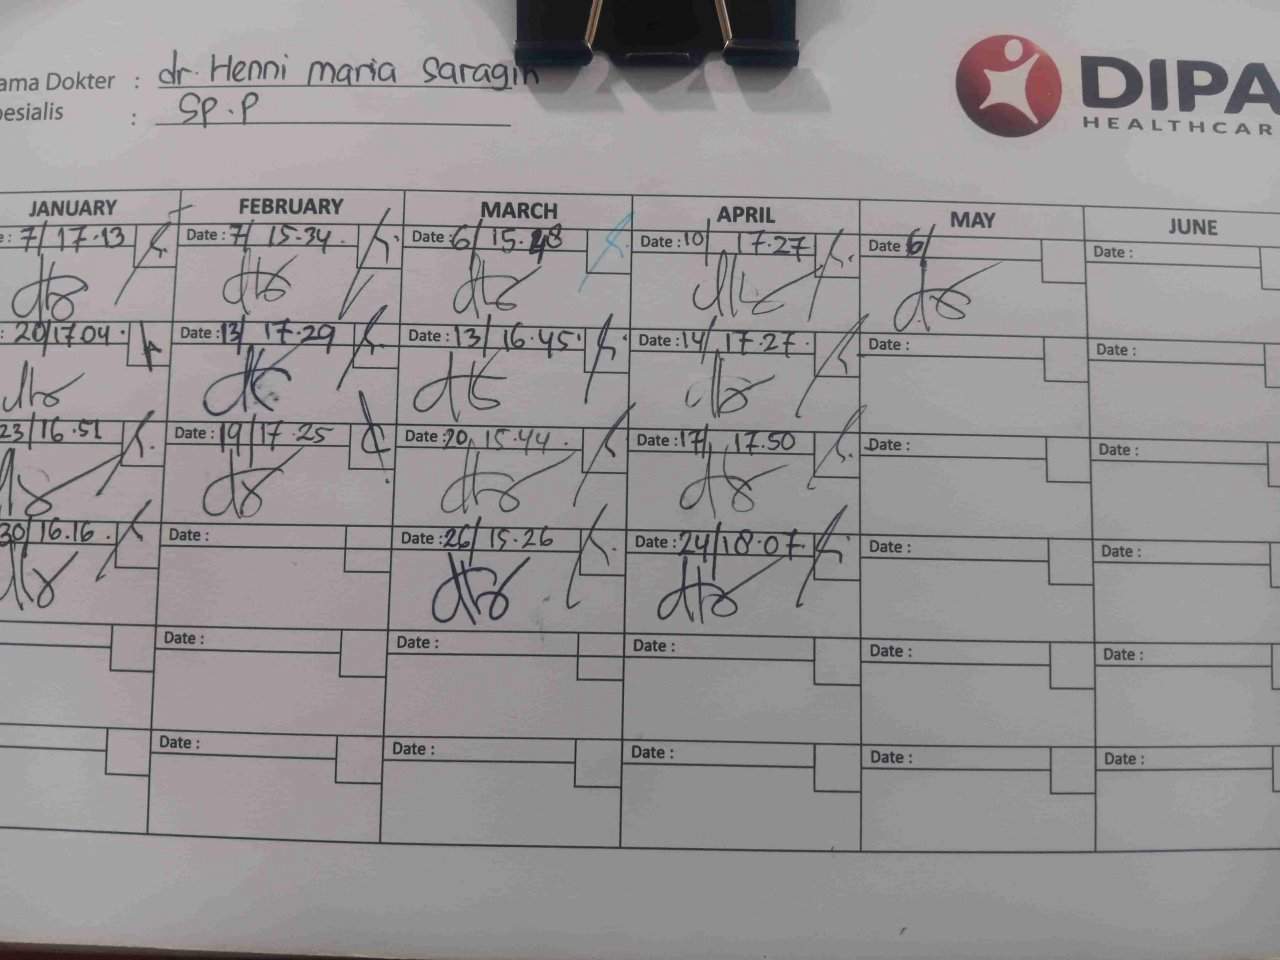 ama Dokter : dr. Henni maria Saragih
esialis : Sp.P
DIPA
HEALTHCAR
JANUARY FEBRUARY MARCH APRIL MAY JUNE
e : 7/ 17.13 Date : 7/ 15.34 Date : 6/ 15. Date : 10/ 17.27 Date : 6/ Date :
: 20/17.04 Date : 13/ 17.29 Date : 13/ 16.45 Date : 14/ 17.27 Date : Date :
23/16.51 Date : 19/17.25 Date : 20/ 15.44 Date : 17/ 17.50 Date : Date :
30/16.16 Date : Date : 26/ 15.26 Date : 24/18.07 Date : Date :
Date : Date : Date : Date : Date :
Date : Date : Date : Date : Date :